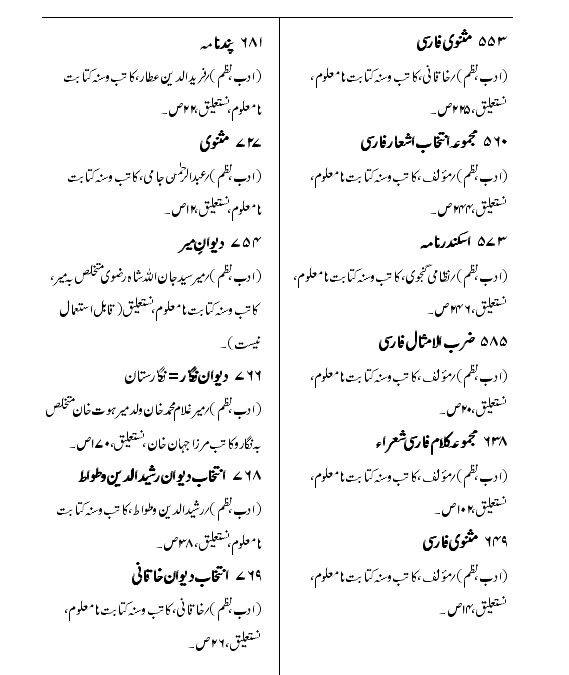 ۵۵۳ مثنوی فارسی
(ادب،نظم)/خاقانی، کاتب وسنہ کتابت نامعلوم،
نستعلیق،۲۲۵ص۔
۵۶۰ مجموعہ انتخاب اشعار فارسی
(ادب،نظم)/مؤلف، کاتب وسنہ کتابت نامعلوم،
نستعلیق،۲۴۴ص۔
۵۷۳ اسکندرنامہ
(ادب،نظم)/نظامی گنجوی، کاتب وسنہ کتابت نامعلوم،
نستعلیق،۲۴۶ص۔
۵۸۵ ضرب الامثال فارسی
(ادب،نظم)/مؤلف، کاتب وسنہ کتابت نامعلوم،
نستعلیق،۲۰ص۔
۶۳۸ مجموعہ کلام فارسی شعراء
(ادب،نظم)/مؤلف، کاتب وسنہ کتابت نامعلوم،
نستعلیق،۱۰۲ص۔
۶۴۹ مثنوی فارسی
(ادب،نظم)/مؤلف، کاتب وسنہ کتابت نامعلوم،
نستعلیق،۱۴ص۔
۶۸۱ پندنامہ
(ادب،نظم)/فریدالدین عطار، کاتب وسنہ کتابت
نامعلوم،نستعلیق،۲۲ص۔
۷۲۷ مثنوی
(ادب،نظم)/عبدالرحمٰن جامی، کاتب وسنہ کتابت
نامعلوم،نستعلیق،۱۲ص۔
۷۵۴ دیوانِ میر
(ادب،نظم)/میر سید جان اللہ شاہ رضوی متخلص بہ میر،
کاتب وسنہ کتابت نامعلوم،نستعلیق (قابل استعمال
نیست)۔
۷۶۶ دیوان نگار = نگارستان
(ادب،نظم)/میر غلام محمد خان ولد میر ہوت خان متخلص
بہ نگار وکاتب مرزا جہان خان،نستعلیق،۱۷۰ص۔
۷۶۸ انتخاب دیوان رشیدالدین وطواط
(ادب،نظم)/رشیدالدین وطواط، کاتب وسنہ کتابت
نامعلوم،نستعلیق،۳۸ص۔
۷۶۹ انتخاب دیوان خاقانی
(ادب،نظم)/خاقانی، کاتب وسنہ کتابت نامعلوم،
نستعلیق،۲۶ص۔